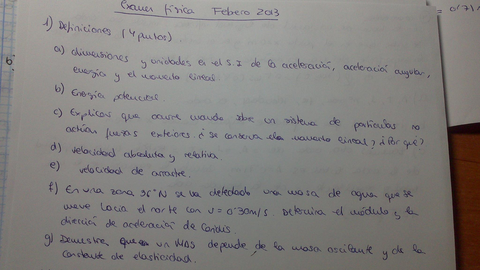 Examen física Febrero 2013
1) Definiciones (4 puntos)
a) dimensiones y unidades en el S.I de la aceleración, aceleración angular,
energía y el momento lineal
b) Energía potencial
c) Explicar que ocurre cuando sobre un sistema de partículas no
actúan fuerzas exteriores ¿se conserva el momento lineal? ¿Por qué?
d) velocidad absoluta y relativa
e) velocidad de arrastre.
f) En una zona 36°N se ha detectado una masa de agua que se
mueve hacia el norte con v = 0'30m/s. Determina el módulo y la
dirección de aceleración de Coriolis.
g) Demuestra que en un MAS depende de la masa oscilante y de la
constante de elasticidad.